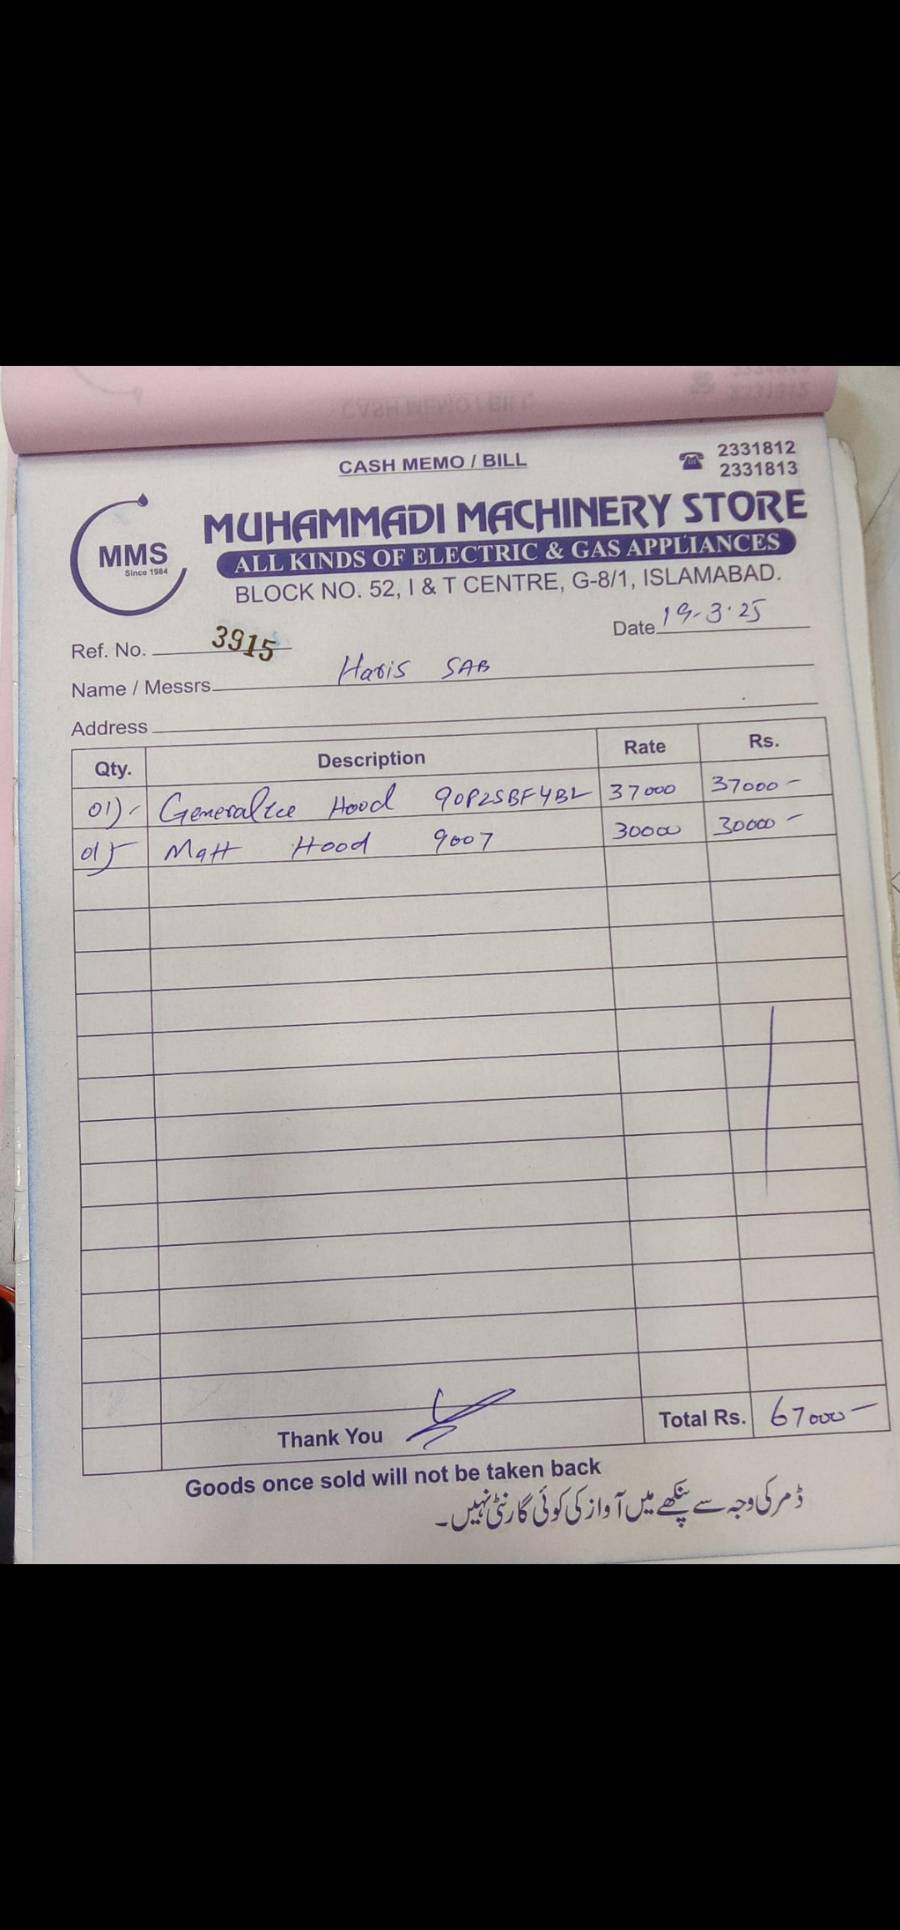 CASH MEMO / BILL
2331812
2331813
MMS
Since 1984
MUHAMMADI MACHINERY STORE
ALL KINDS OF ELECTRIC & GAS APPLIANCES
BLOCK NO. 52, I & T CENTRE, G-8/1, ISLAMABAD.
Ref. No. 3915 Date 19-3-25
Name / Messrs. Haris SAB
Address
Qty. Description Rate Rs.
01) Generaltec Hood 90P2SBF4BL 37000 37000-
01) Matt Hood 9007 30000 30000-
Thank You Total Rs. 67000-
Goods once sold will not be taken back
ڈمر کی وجہ سے پنکھے میں آواز کی کوئی گارنٹی نہیں۔